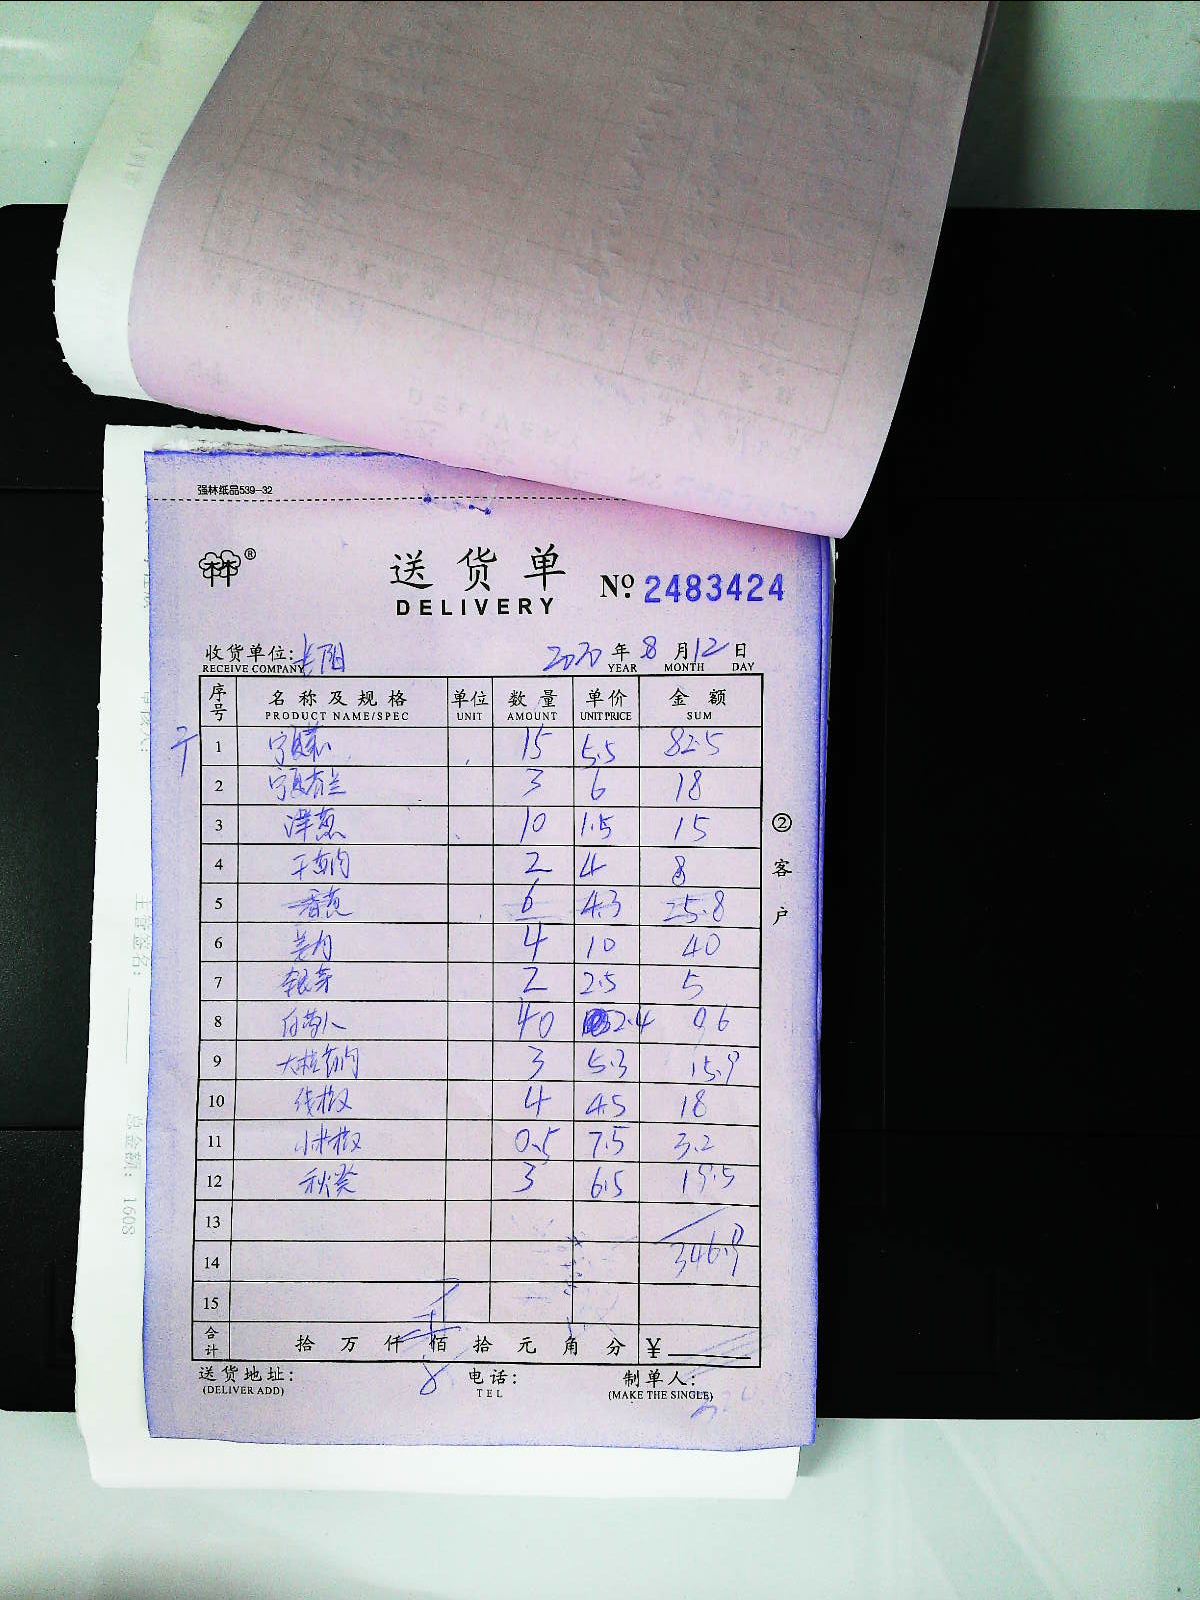 强林纸品539-32
林® 送货单 №: 2483424
DELIVERY
收货单位: 长阳 2020年8月12日
RECEIVE COMPANY YEAR MONTH DAY
序号 名称及规格 单位 数量 单价 金额
PRODUCT NAME/SPEC UNIT AMOUNT UNIT PRICE SUM
1 宁夏菜心 15 5.5 82.5
2 宁夏芥兰 3 6 18
3 洋葱 10 1.5 15
4 2 4 8
5 香葱 6 4.3 25.8
6 姜肉 4 10 40
7 银芽 2 2.5 5
8 白萝卜 40 2.4 96
9 3 5.3 15.9
10 线椒 4 4.5 18
11 小米椒 0.5 7.5 3.2
12 秋葵 3 6.5 19.5
13
14 346.9
15
合计 拾 万 仟 佰 拾 元 角 分 ¥
送货地址: 电话: 制单人:
(DELIVER ADD) TEL (MAKE THE SINGLE)
②客户
主管签名:
总金额: 1608